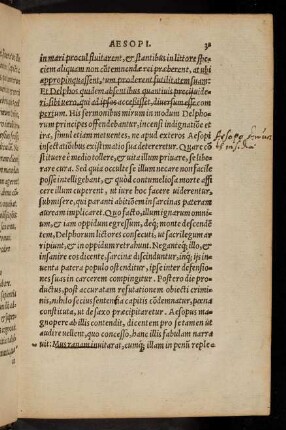 AESOPI. 38
in mari procul fluitarent, & stantibus in littore spe
ciem aliquam non cōtemnendæ rei præberent, at ubi
appropinquassent, tum proderent
Et Delphos quidem absentibus
ri, sibi uero, qui ad ipsos accessisset, diuersum esse com
pertum. His sermonibus mirum in modum Delpho-
rum principes offendebantur, incensi indignatione et
ira, simul etiam metuentes, ne apud exteros Aesopi
insectatiōibus existimatio sua detereretur. Quare cō
stituere è medio tollere, & uita illum priuare, se libe
rare cura. Sed quia occulte se illum necare non facile
posse intelligebant, & quòd contumeliosa morte affi
cere illum cuperent, ut iure hoc facere uiderentur,
submisere, qui paranti abitiōem in sarcinas pateram
auream implicaret. Quo facto, illum ignarum omnium,
& iam oppidum egressum, deq́; monte descendē
tem, Delphorum lictores consecuti, ut sacrilegum ar
ripiunt, & in oppidum retrahunt. Negante q́; illo, &
insanire eos dicente, sarcinæ disciunduntur, inq́; ijs in
uenta patera populo ostenditur, ipse inter defensio-
nes suas in carcerem compingitur. Postero die pro
ductus, post accuratam refutationem obiecti crimi
nis, nihilo secius sententia capitis cōdemnatur, pœna
constituta, ut de saxo præcipitaretur. Aesopus ma
gnopere ab illis contendit, dicentem pro se tamen ut
audire uellent, quo concesso, hanc illis fabulam narra
uit: Mus ranam inuitarat, cumq́; illam in penu reple-
Aesopo